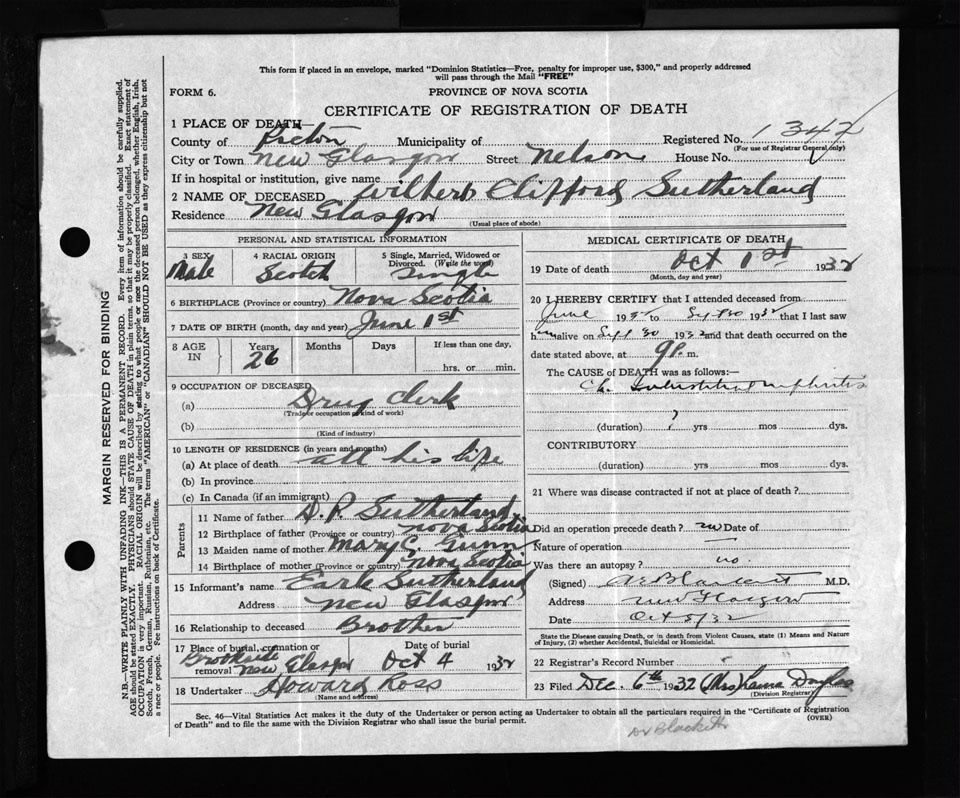 This form if placed in an envelope, marked "Dominion Statistics—Free, penalty for improper use, $300," and properly addressed
will pass through the Mail "FREE"
FORM 6.
PROVINCE OF NOVA SCOTIA
CERTIFICATE OF REGISTRATION OF DEATH
1 PLACE OF DEATH
County of Pictou Municipality of Registered No. 1342
(For use of Registrar General only)
City or Town New Glasgow Street Nelson House No.
If in hospital or institution, give name
2 NAME OF DECEASED Wilbert Clifford Sutherland
Residence New Glasgow
(Usual place of abode)
PERSONAL AND STATISTICAL INFORMATION
3 SEX Male
4 RACIAL ORIGIN Scotch
5 Single, Married, Widowed or Divorced. (Write the word) Single
6 BIRTHPLACE (Province or country) Nova Scotia
7 DATE OF BIRTH (month, day and year) June 1st
8 AGE IN Years 26 Months Days If less than one day, hrs. or min.
9 OCCUPATION OF DECEASED
(a) Drug Clerk
(Trade or occupation or kind of work)
(b)
(Kind of industry)
10 LENGTH OF RESIDENCE (in years and months)
(a) At place of death all his life
(b) In province
(c) In Canada (if an immigrant)
Parents
11 Name of father D. P. Sutherland
12 Birthplace of father (Province or country) Nova Scotia
13 Maiden name of mother Mary C. Gunn
14 Birthplace of mother (Province or country) Nova Scotia
15 Informant's name Earle Sutherland
Address New Glasgow
16 Relationship to deceased Brother
17 Place of burial, cremation or removal Brookside New Glasgow
Date of burial Oct 4 1932
18 Undertaker Howard Ross
(Name and address)
MEDICAL CERTIFICATE OF DEATH
19 Date of death Oct 1st 1932
(Month, day and year)
20 I HEREBY CERTIFY that I attended deceased from
June 193 to Sept 30 1932 that I last saw
him alive on Sept 30 1932 and that death occurred on
date stated above, at 9 P. m.
The CAUSE of DEATH was as follows:—
Ch. Interstitial nephritis
(duration) ? yrs mos dys.
CONTRIBUTORY
(duration) yrs mos dys.
21 Where was disease contracted if not at place of death?
Did an operation precede death? no Date of
Nature of operation —
Was there an autopsy? no.
(Signed) M.D.
Address New Glasgow
Date Oct 5/32
State the Disease causing Death, or in death from Violent Causes, state (1) Means and Nature
of Injury, (2) whether Accidental, Suicidal or Homicidal.
22 Registrar's Record Number
23 Filed Dec. 6th 1932 (Mrs) Laura Douglas
(Division Registrar)
Sec. 46—Vital Statistics Act makes it the duty of the Undertaker or person acting as Undertaker to obtain all the particulars required in the "Certificate of Registration
of Death" and to file the same with the Division Registrar who shall issue the burial permit.
(OVER)
Dr Blackett
MARGIN RESERVED FOR BINDING
N.B.—WRITE PLAINLY WITH UNFADING INK—THIS IS A PERMANENT RECORD. Every item of information should be carefully supplied.
AGE should be stated EXACTLY. PHYSICIANS should STATE CAUSE OF DEATH in plain terms, so that it may be properly classified. Exact statement of
OCCUPATION is very important. RACIAL ORIGIN will be described by stating to what people or race the deceased person belonged, whether English, Irish,
Scotch, French, German, Russian, Ruthenian, etc. The terms "AMERICAN" or "CANADIAN" SHOULD NOT BE USED as they express citizenship but not
a race or people. Fee instructions on back of Certificate.